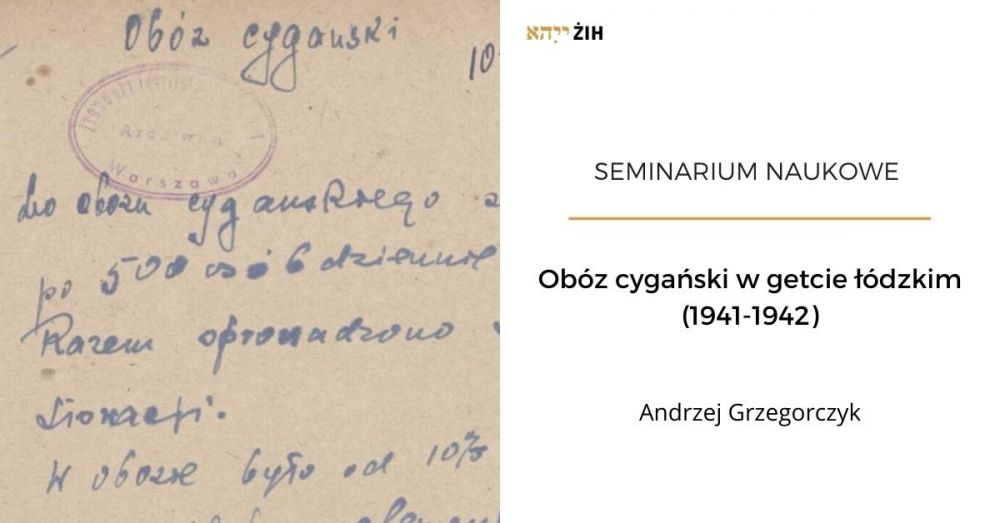 Obóz cygański
10
Żydowski Instytut
Archiwum
Warszawa
Do obozu cygańskiego
po 500 osób dziennie
Razem oprowadzono
W obozie było od 10%
ŻIH
SEMINARIUM NAUKOWE
Obóz cygański w getcie łódzkim
(1941-1942)
Andrzej Grzegorczyk